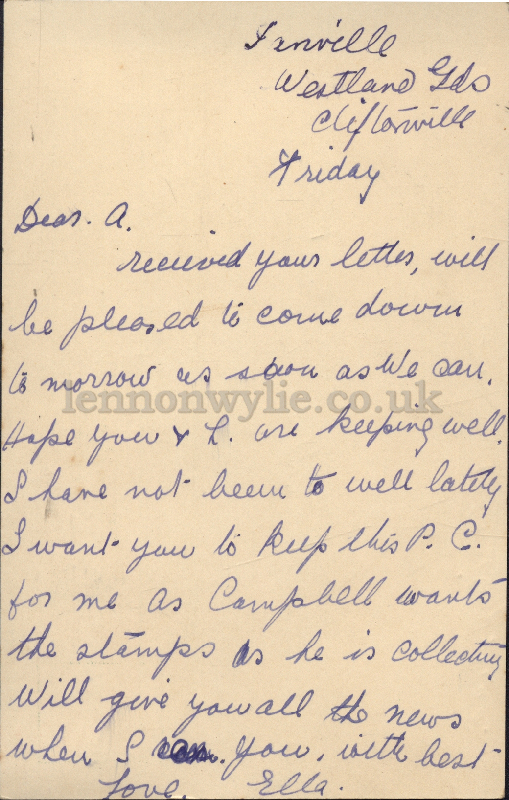 Inville
Westland Gds
Cliftonville
Friday
Dear. A.
received your letter, will
be pleased to come down
to morrow as soon as We can.
lennonwylie.co.uk
Hope you & L. are keeping well.
I have not been to well lately
I want you to keep this P. C.
for me as Campbell wants
the stamps as he is collecting
Will give you all the news
when I . you. with best
Love. Ella.